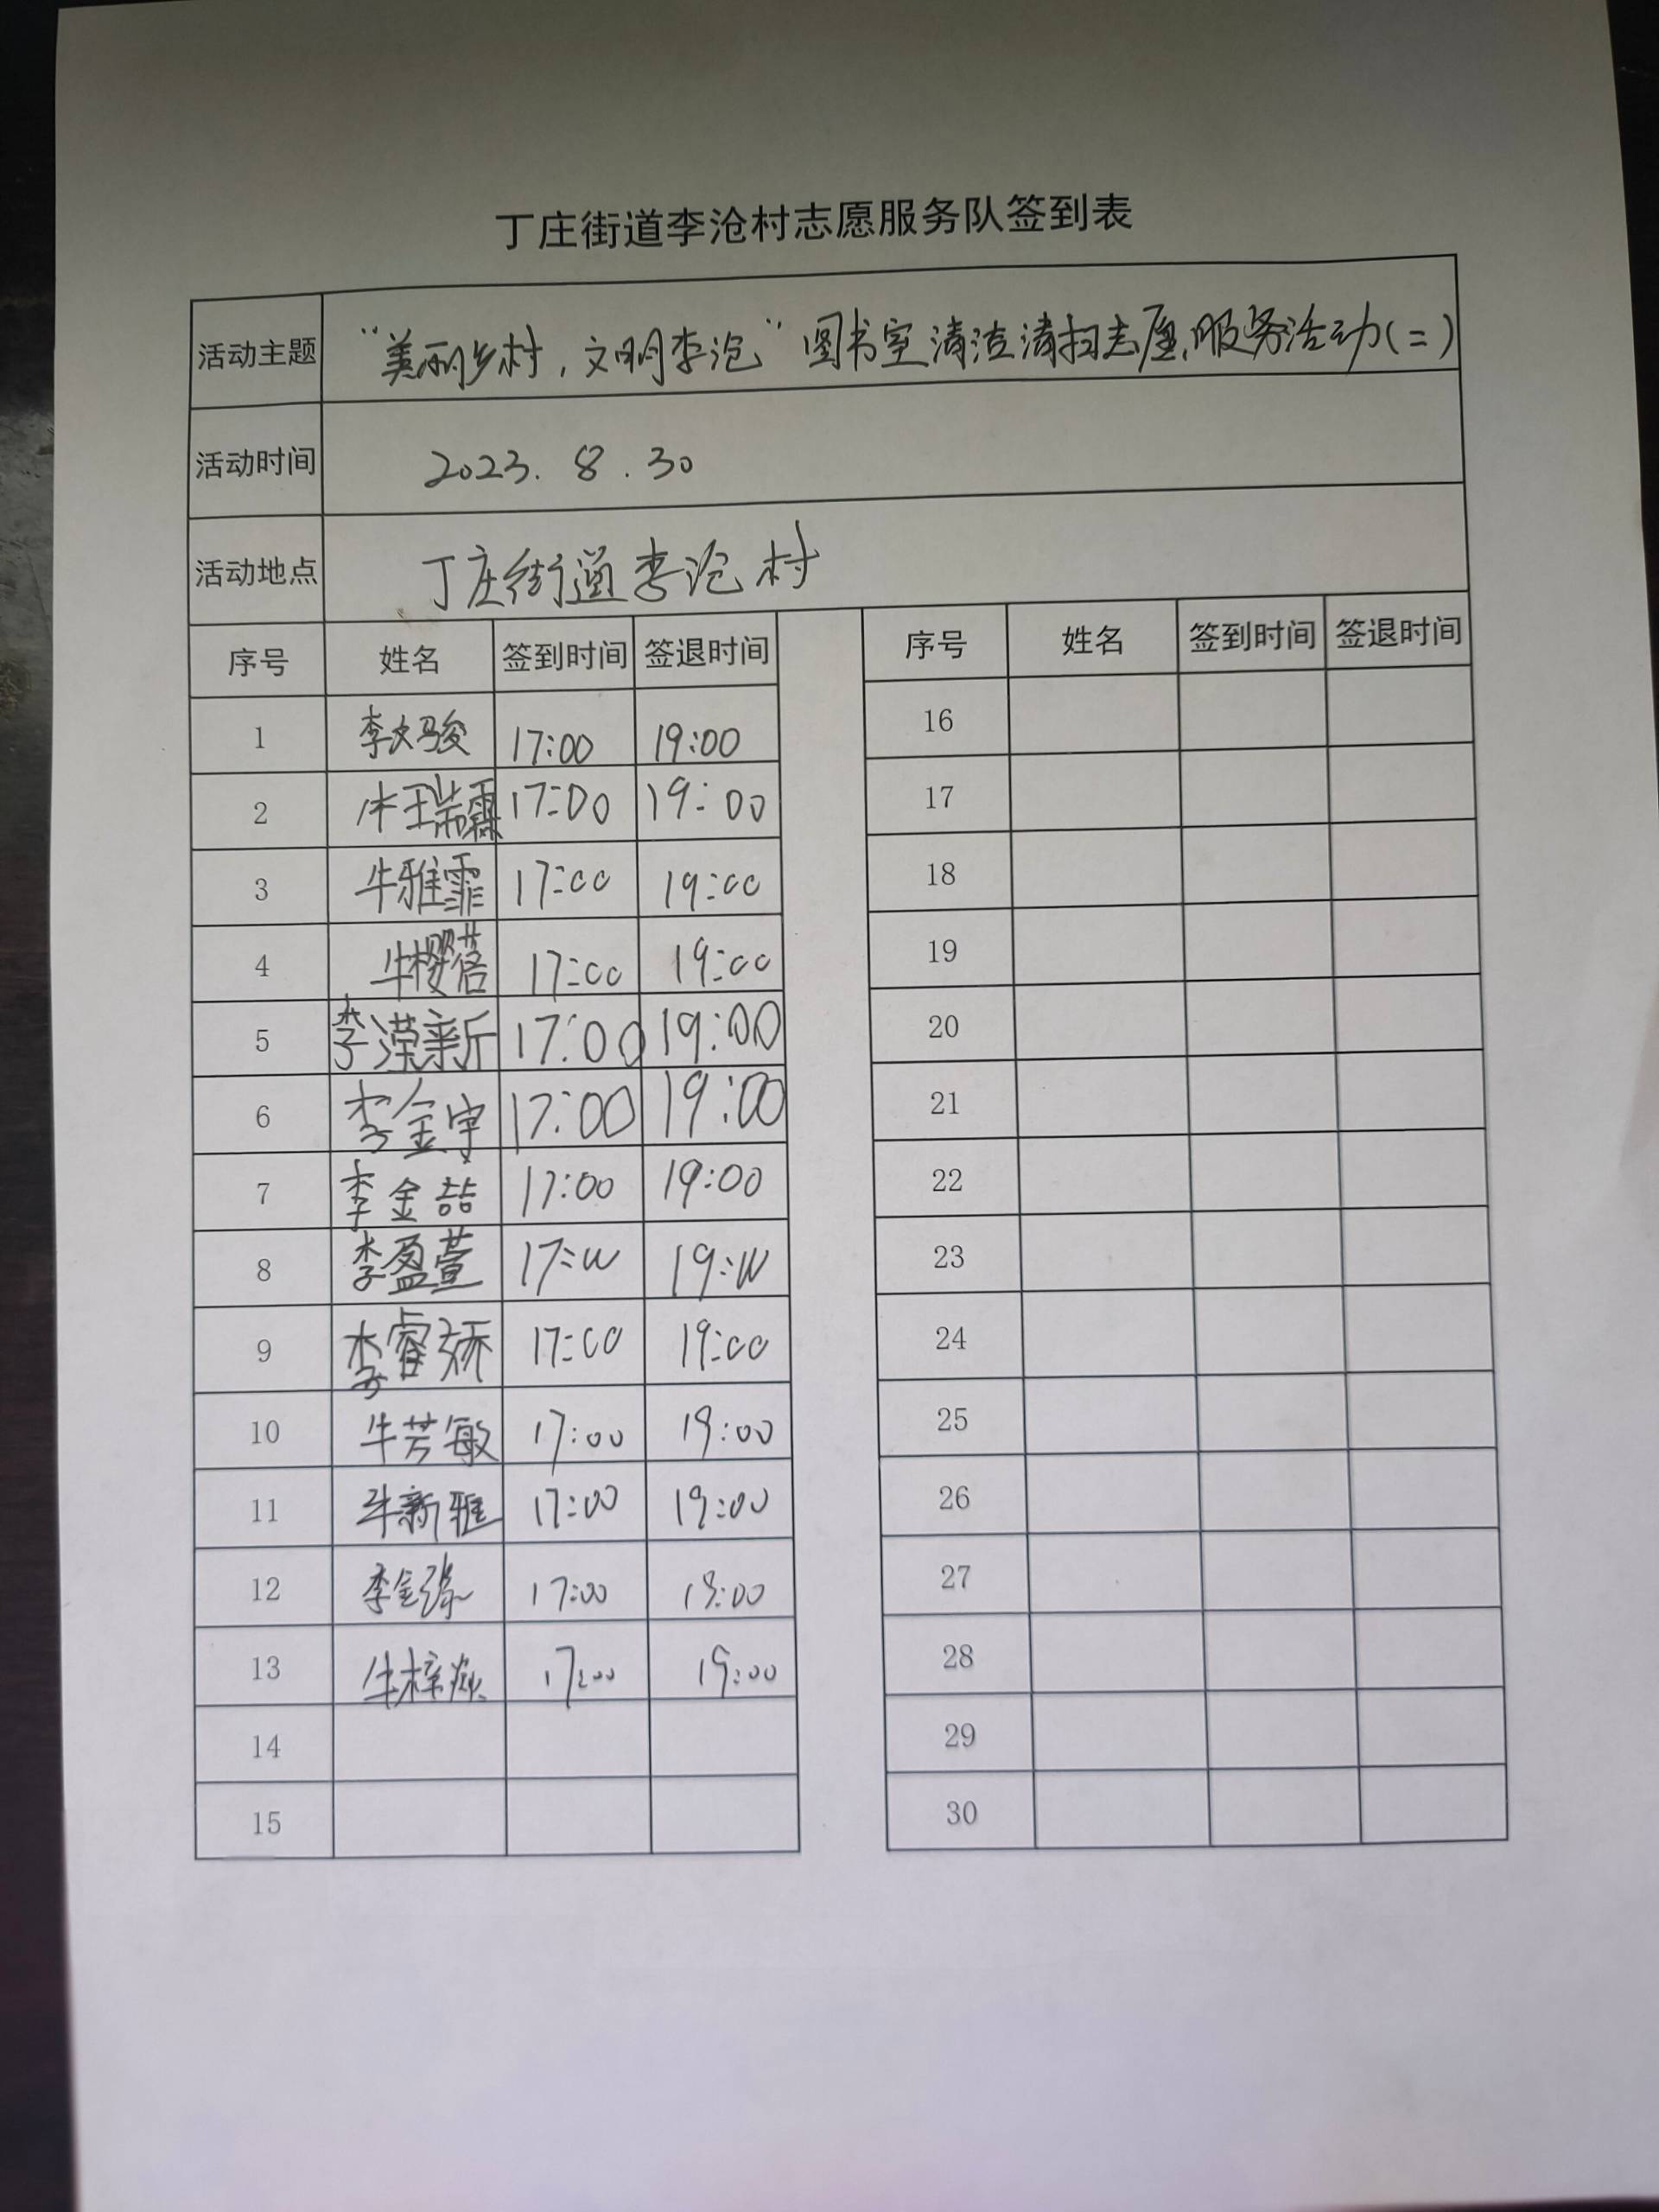 丁庄街道李沧村志愿服务队签到表
活动主题 "美丽乡村，文明李沧"图书室清洁清扫志愿服务活动(二)
活动时间 2023.8.30
活动地点 丁庄街道李沧村
序号 姓名 签到时间 签退时间 序号 姓名 签到时间 签退时间
1 李文骏 17:00 19:00 16
2 牛瑞霖 17:00 19:00 17
3 牛雅霏 17:00 19:00 18
4 牛樱蓓 17:00 19:00 19
5 李滢新 17:00 19:00 20
6 李金宇 17:00 19:00 21
7 李金喆 17:00 19:00 22
8 李盈萱 17:00 19:00 23
9 李睿 17:00 19:00 24
10 牛芳敏 17:00 19:00 25
11 牛新雅 17:00 19:00 26
12 李金 17:00 19:00 27
13 牛梓焱 17:00 19:00 28
14 29
15 30